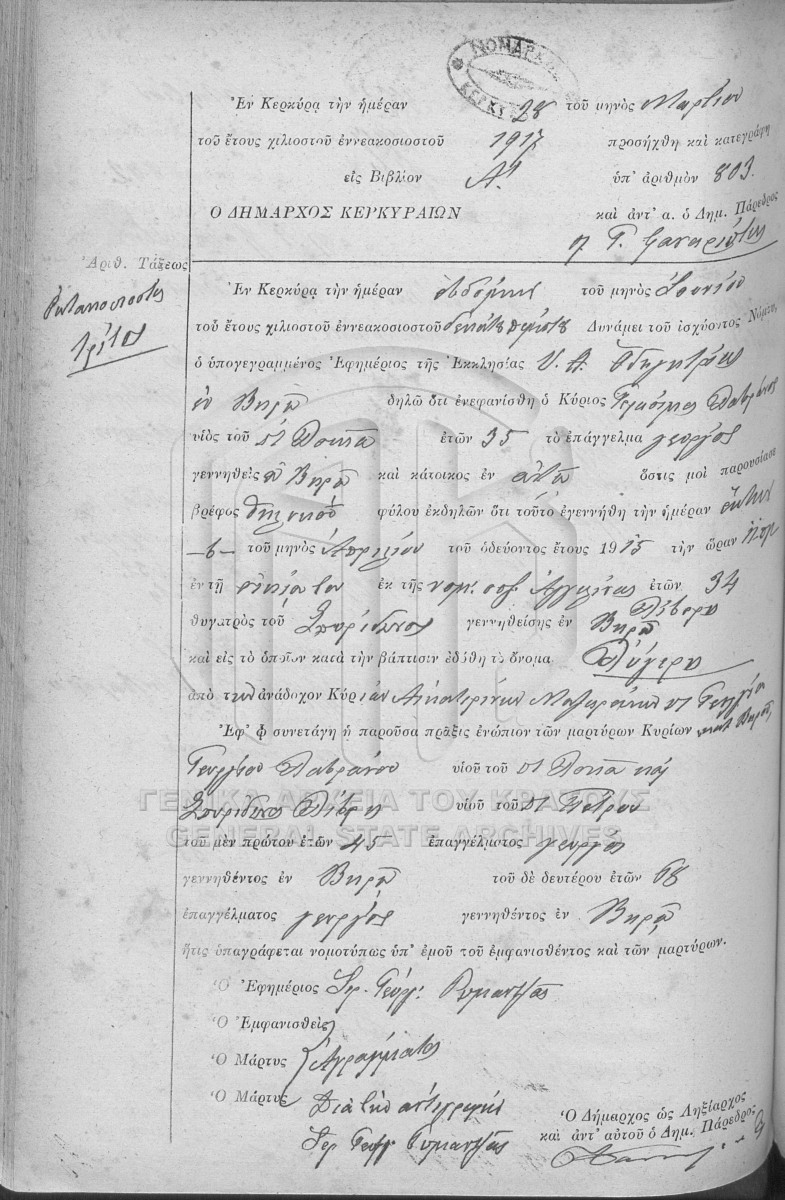 ΝΟΜΑΡΧ
ΚΕΡΚΥ
Ἐν Κερκύρᾳ τὴν ἡμέραν 28 τοῦ μηνὸς Μαρτίου
τοῦ ἔτους χιλιοστοῦ ἐννεακοσιοστοῦ 1917 προσήχθη καὶ κατεγράφη
εἰς Βιβλίον Α' ὑπ' ἀριθμὸν 803.
Ο ΔΗΜΑΡΧΟΣ ΚΕΡΚΥΡΑΙΩΝ καὶ ἀντ' α. ὁ Δημ. Πάρεδρος
Γ.
Ἀριθ. Τάξεως
Ὀκτακοσιοστὸς
τρίτος
Ἐν Κερκύρᾳ τὴν ἡμέραν ἑβδόμην τοῦ μηνὸς Ἰουνίου
τοῦ ἔτους χιλιοστοῦ ἐννεακοσιοστοῦ δεκάτου πέμπτου Δυνάμει τοῦ ἰσχύοντος Νόμου,
ὁ ὑπογεγραμμένος Ἐφημέριος τῆς Ἐκκλησίας Υ. Θ. Ὁδηγητρίας
ἐν Βηρῷ δηλῶ ὅτι ἐνεφανίσθη ὁ Κύριος
υἱὸς τοῦ ἐτῶν 35 τὸ ἐπάγγελμα γεωργὸς
γεννηθεὶς ἐν Βηρῷ καὶ κάτοικος ἐν αὐτῷ ὅστις μοὶ παρουσίασε
βρέφος θηλυκοῦ φύλου ἐκδηλῶν ὅτι τοῦτο ἐγεννήθη τὴν ἡμέραν ἕκτην
-6- τοῦ μηνὸς Ἀπριλίου τοῦ ὁδεύοντος ἔτους 1915 τὴν ὥραν
ἐν τῇ οἰκίᾳ του ἐκ τῆς νομ. συζ. Ἀγγελίνας ἐτῶν 34
θυγατρὸς τοῦ Σπυρίδωνος γεννηθείσης ἐν Βηρῷ
καὶ εἰς τὸ ὁποῖον κατὰ τὴν βάπτισιν ἐδόθη τὸ ὄνομα
ἀπὸ τὴν ἀνάδοχον Κυρίαν Αἰκατερίνην
Ἐφ' ᾧ συνετάγη ἡ παροῦσα πρᾶξις ἐνώπιον τῶν μαρτύρων Κυρίων
Γεωργίου υἱοῦ τοῦ
ΓΕΝΙΚΑ ΑΡΧΕΙΑ ΤΟΥ ΚΡΑΤΟΥΣ
Σπυρίδωνος υἱοῦ τοῦ Πέτρου
GENERAL STATE ARCHIVES
τοῦ μὲν πρώτου ἐτῶν 45 ἐπαγγέλματος γεωργὸς
γεννηθέντος ἐν Βηρῷ τοῦ δὲ δευτέρου ἐτῶν 68
ἐπαγγέλματος γεωργὸς γεννηθέντος ἐν Βηρῷ
ἥτις ὑπαγράφεται νομοτύπως ὑπ' ἐμοῦ τοῦ ἐμφανισθέντος καὶ τῶν μαρτύρων.
Ὁ Ἐφημέριος Ἱερ. Γεώργ.
Ὁ Ἐμφανισθεὶς
Ὁ Μάρτυς Ἀγράμματος
Ὁ Μάρτυς Διὰ τὴν ἀντιγραφὴν
Ἱερ Γεώργ
Ὁ Δήμαρχος ὡς Ληξίαρχος
καὶ ἀντ' αὐτοῦ ὁ Δημ. Πάρεδρος